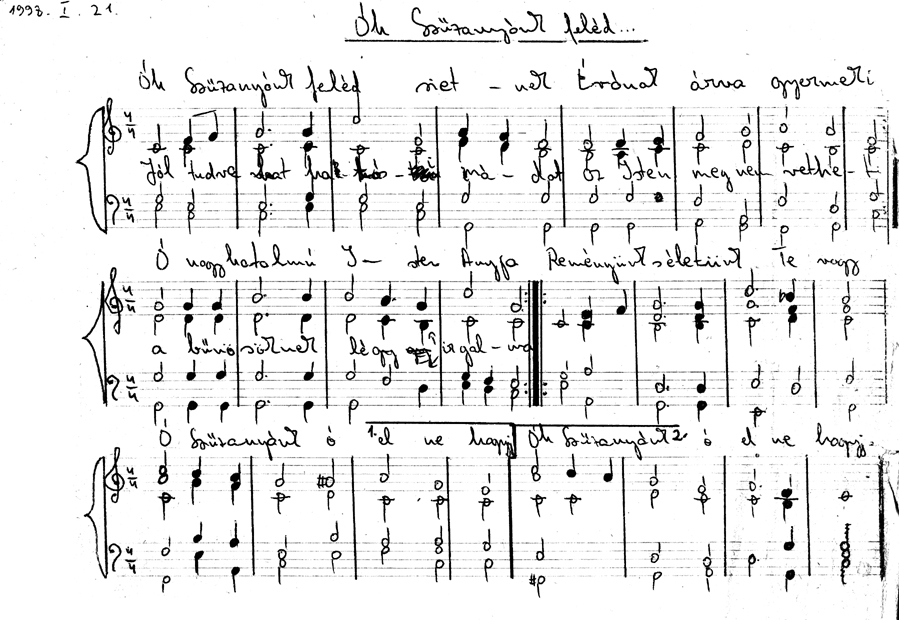 1998. I. 21.
Óh Szűzanyánk feléd...
Óh Szűzanyánk feléd siet - nek Érdnek árva gyermeki
Jól tudva má - dat az Isten meg nem vethe - ti
Ó nagyhatalmú I - sten Anyja Reményünk s életünk Te vagy
a bűnösöknek légy irgal - ma
Ó Szűzanyánk ó 1. el ne hagyj Óh Szűzanyánk 2. ó el ne hagyj.